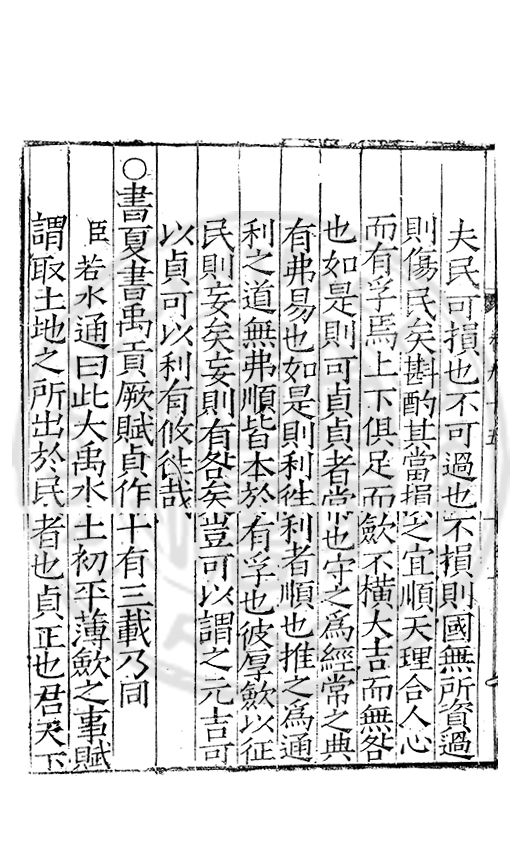 夫民可損也不可過也不損則國無所資過
則傷民矣斟酌其當損之宜順天理合人心
而有孚焉上下俱足而斂不橫大吉而無咎
也如是則可貞貞者常也守之為經常之典
有弗易也如是則利往利者順也推之為通
利之道無弗順皆本於有孚也彼厚斂以征
民則妄矣妄則有咎矣豈可以謂之元吉可
以貞可以利有攸往哉
○書夏書禹貢厥賦貞作十有三載乃同
臣若水通曰此大禹水土初平薄斂之事賦
謂取土地之所出於民者也貞正也君天下